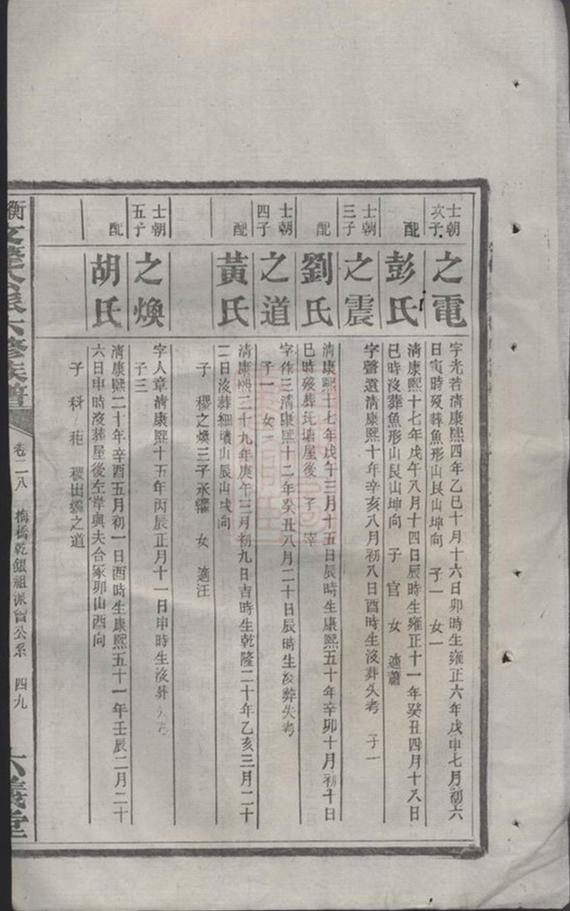 士朝
次子
之電
字光若清康熙四年乙巳十月十六日卯時生雍正六年戊申七月初六
日寅時歿葬魚形山艮山坤向 子一 女一
配
彭氏
清康熙十七年戊午八月十四日辰時生雍正十一年癸丑四月十八日
巳時沒葬魚形山艮山坤向 子 官 女 適蕭
士朝
三子
之震
字聲遠清康熙十年辛亥八月初八日酉時生沒葬失考 子一
配
劉氏
清康熙十七年戊午三月十五日辰時生康熙五十年辛卯十月初十日
巳時歿葬 屋後 子 宰
士朝
四子
之道
字作三清康熙十二年癸丑八月二十日辰時生沒葬失考
子一 女一
配
黃氏
清康熙三十九年庚午三月初九日吉時生乾隆二十年乙亥三月二十
二日沒葬細 山辰山戌向
子 稷之煥三子承 女 適汪
士朝
五子
之煥
字人章清康熙十五年丙辰正月十一日申時生沒葬失考
子三
配
胡氏
清康熙二十年辛酉五月初一日酉時生康熙五十一年壬辰二月二十
六日申時沒葬屋後左岸與夫合冢卯山酉向
子 科 秬 稷出繼之道
衡 六修族譜
卷二八 梅橋乾銀祖派 公系 四九
六義堂